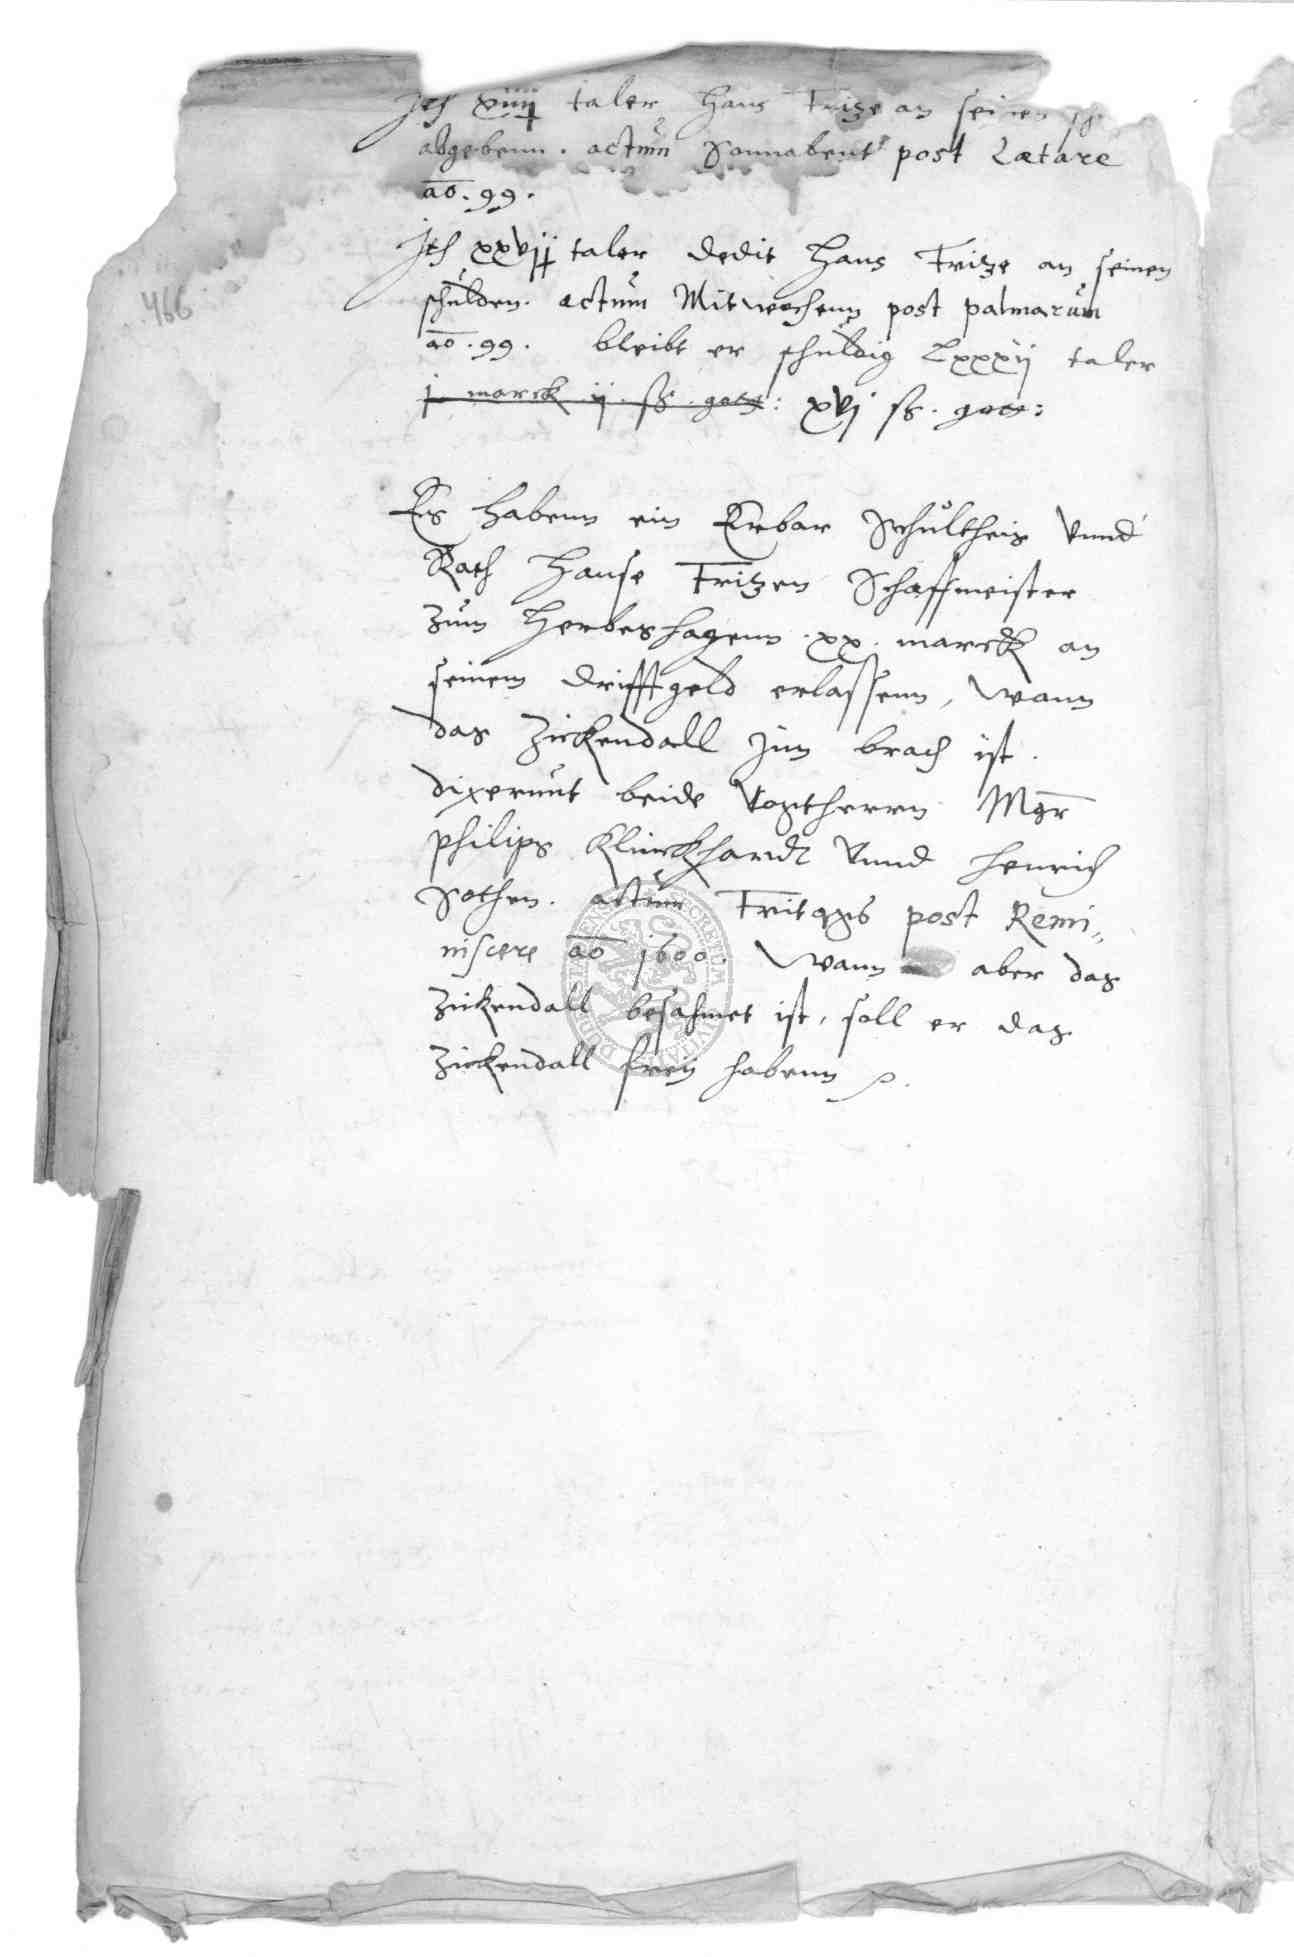 Ith xiiij taler Hans Fritze an seinen sch
abgebenn. actum Sonnabent post Lætare
ao. 99.
Ith xxvij taler dedit Hans Fritze an seinen
schulden. actum Mitwochenn post palmarum
ao. 99. bleibt er schuldig Lxxxij taler
j marck ij ß. gott: xvj ß. gott:
466
Es habenn ein Erbar Schultheis vnnd
Rath Hanse Fritzen Schaffmeister
zum Herbeshagenn .xx. marck an
seinem drifftgeld erlassenn, wann
das Zickendall jnn brach ist.
dixerunt beide Vogtherrn Mgr
Philips Klinckhardt vnnd Henrich
Sothen. actum Fritags post Remi„
niscere ao 1600. Wann aber das
Zickendall besahmet ist, soll er das
Zickendall freij habenn